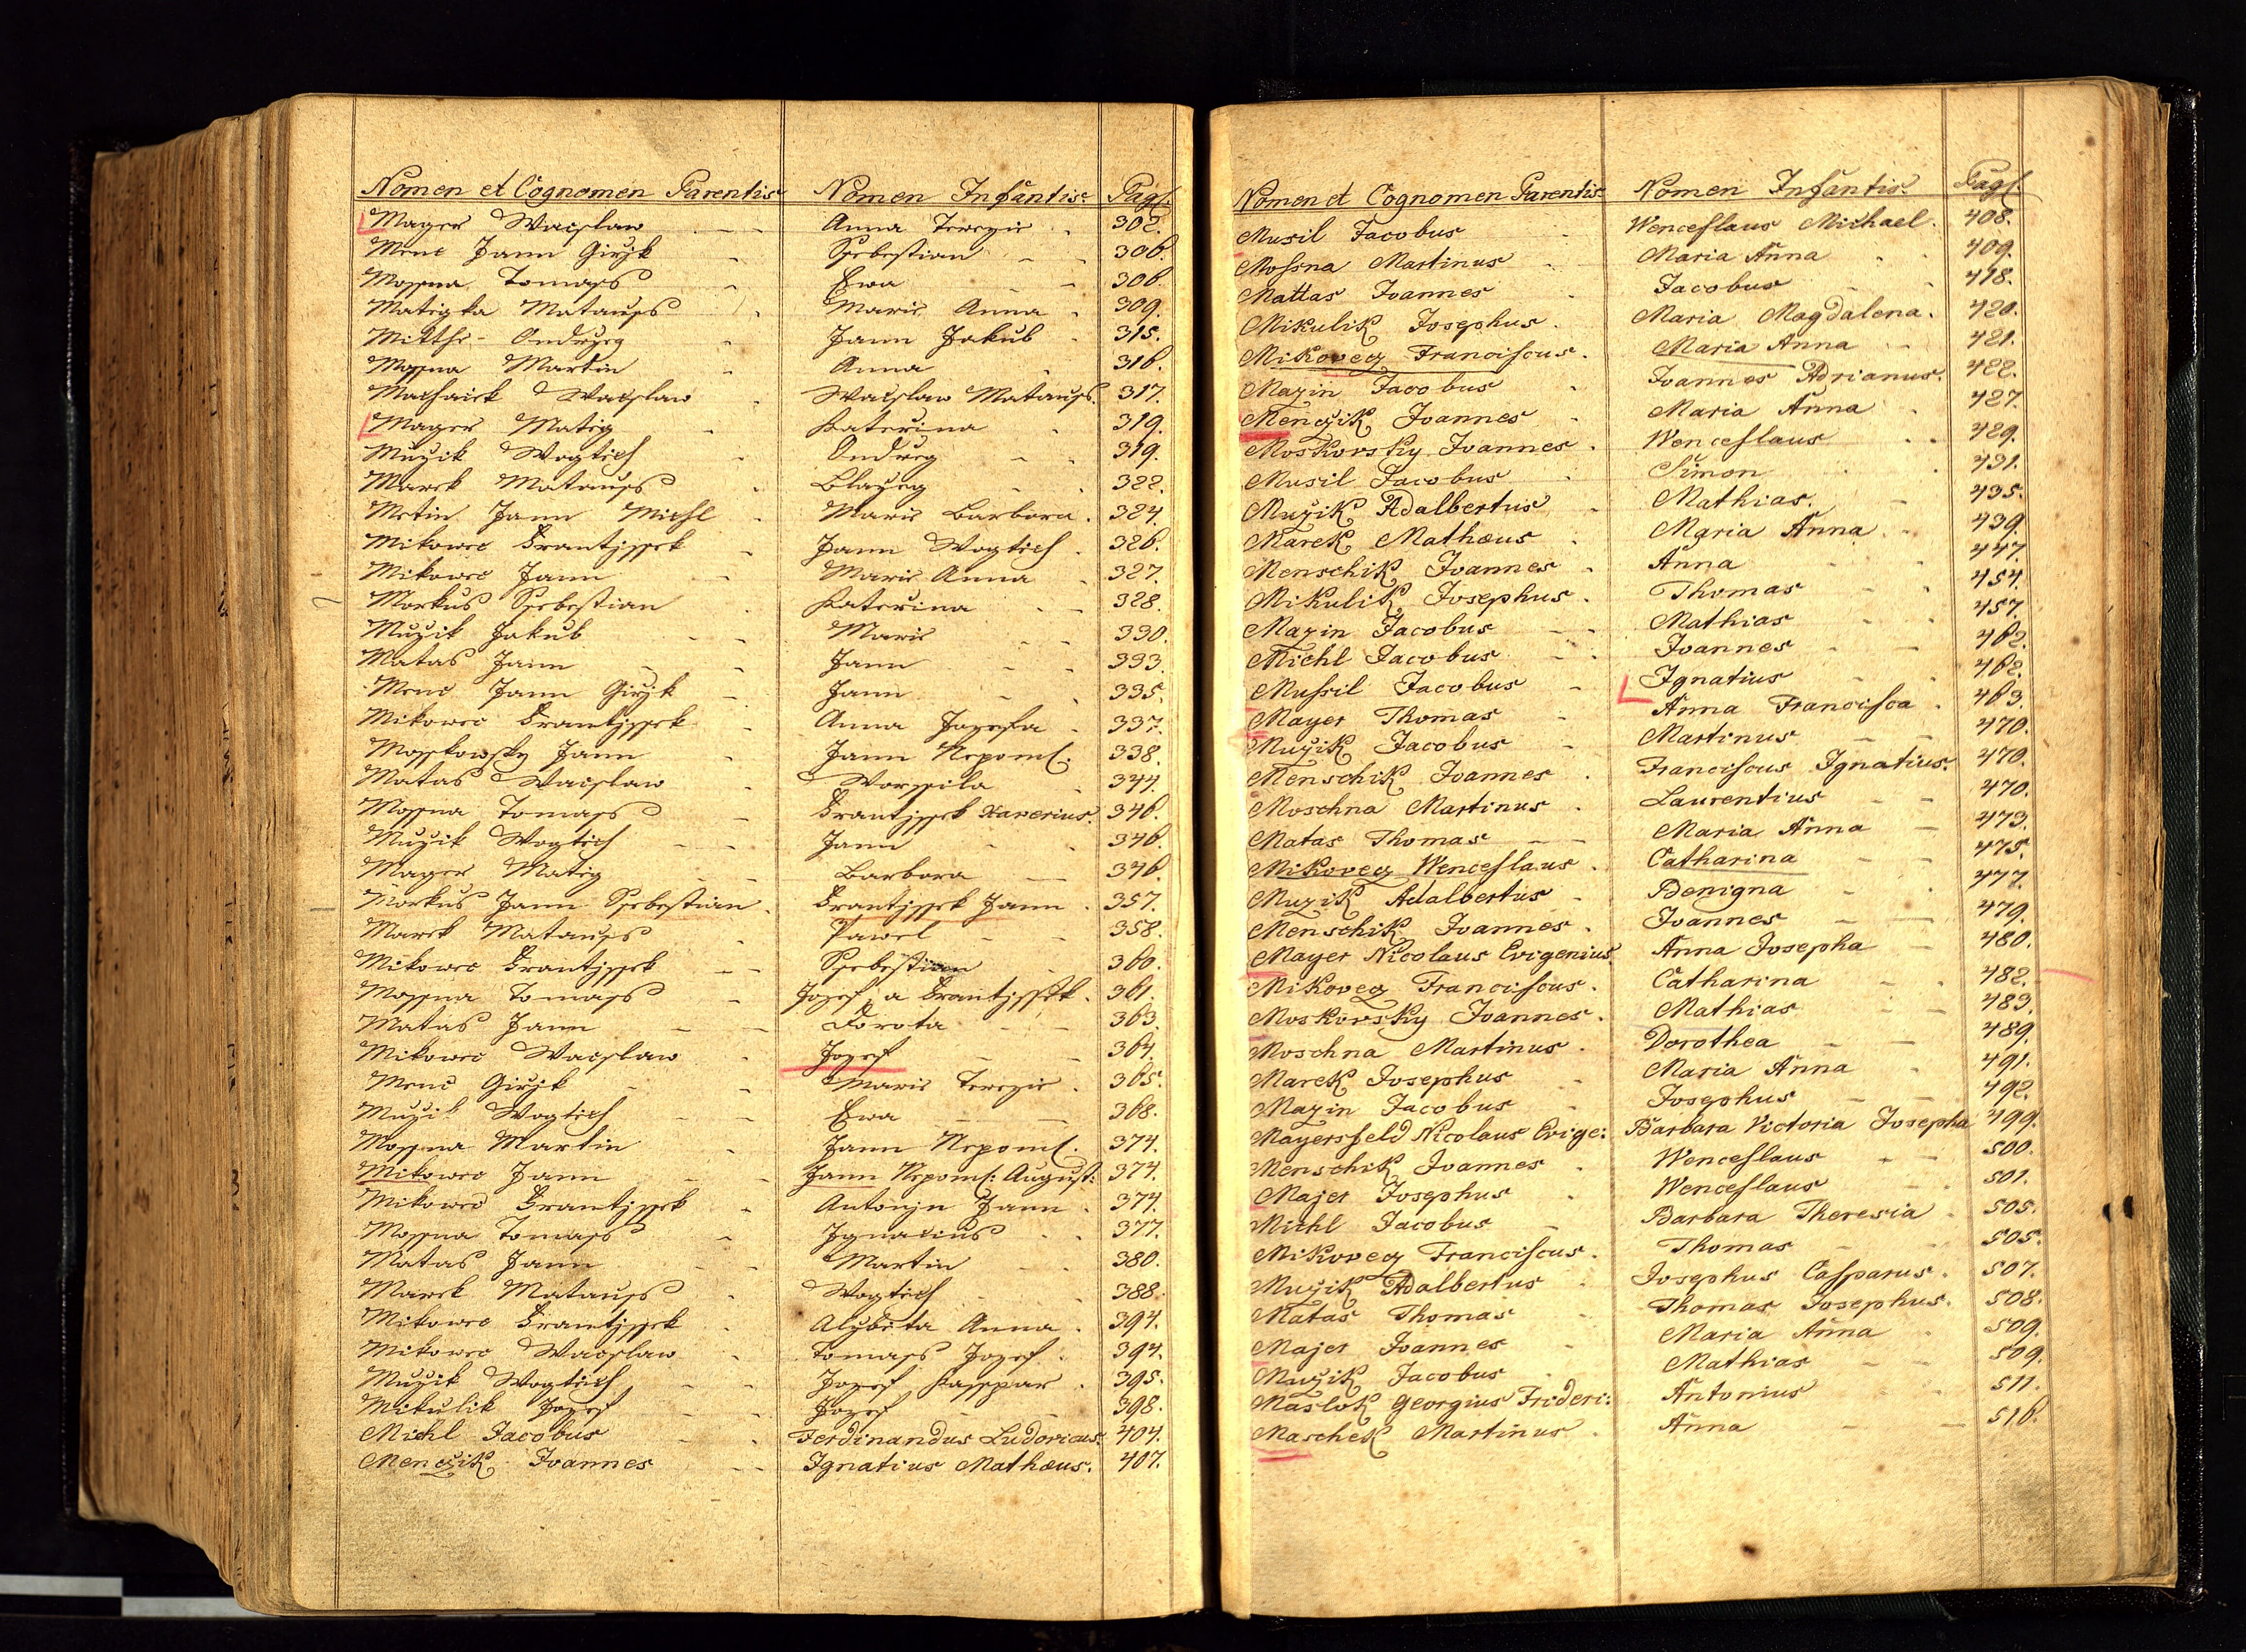 Nomen et Cognomen Parentis Nomen Infantis Pag.
Mayer Waczlaw Anna Terezie 302.
Menc Jann Girzjk Ssebestian 306.
Mossna Tomass Ewa 306.
Matigka Matauss Marie Anna 309.
Ondrzeg Jann Jakub 315.
Mossna Martin Anna 316.
Waczlaw Waczlaw Matauss. 317.
Mayer Matieg Katerina 319.
Muzik Wogtiech Ondrzeg 319.
Marek Matauss Blazeg 322.
Metin Jann Michl Marie Barbora. 324.
Mikowec Frantjssek Jann Wogtiech. 326.
Mikowec Jann Marie Anna 327.
Morkus Ssebestian Katerina 328.
Muzik Jakub Marie 330.
Matas Jann Jann 333.
Menc Jann Girzjk Jann 335.
Mikowec Frantjssek Anna Jozefa 337.
Mosskowsky Jann Jann Nepom. 338.
Matas Waczlaw Worssila 344.
Mossna Tomass Frantjssek Xaverius. 346.
Muzik Wogtiech Jann 346.
Mayer Matieg Barbora 346.
Morkus Jann Ssebestian. Frantjssek Jann. 357.
Marek Matauss Pawel 358.
Mikowec Frantjssek Ssebestian 360.
Mossna Tomass Jozef a Frantjssek. 361.
Matas Jann Dorota 363.
Mikowec Waczlaw Jozef 364.
Menc Girzjk Marie Terezie. 365.
Muzik Wogtiech Ewa 368.
Mossna Martin Jann Nepom. 374.
Mikowec Jann Jann Nepom: August: 374.
Mikowec Frantjssek Antonjn Jann. 374.
Mossna Tomass Jgnacius 377.
Matas Jann Martin 380.
Marek Matauss Wogtiech 388.
Mikowec Frantjssek Alzbieta Anna. 394.
Mikowec Waczlaw Tomass Jozef. 394.
Muzik Wogtiech Jozef Kasspar. 395.
Mikulik Jozef Jozef 398.
Michl Jacobus Ferdinandus Ludovicus. 404.
Menczik Joannes Ignatius Mathæus. 407.
Nomen et Cognomen Parentis Nomen Infantis Pag.
Musil Jacobus Wenceslaus Michael. 408.
Mossna Martinus Maria Anna 409.
Mattas Joannes Jacobus 418.
Mikulik Josephus. Maria Magdalena. 420.
Mikovecz Franciscus. Maria Anna 421.
Mazin Jacobus Joannes Adrianus. 422.
Menczik Joannes Maria Anna 427.
Moskovsky Joannes. Wenceslaus 429.
Musil Jacobus Simon 431.
Muzik Adalbertus Mathias. 435.
Marek Mathæus Maria Anna 439.
Menschik Joannes Anna 447.
Mikulik Josephus. Thomas 454.
Mazin Jacobus Mathias 457.
Michl Jacobus Joannes 462.
Mussil Jacobus Ignatius 462.
Mayer Thomas Anna Francisca. 463.
Muzik Jacobus Martinus 470.
Menschik Joannes Franciscus Ignatius. 470.
Moschna Martinus. Laurentius 470.
Matas Thomas Maria Anna 473.
Mikovecz Wenceslaus. Catharina 475.
Muzik Adalbertus Benigna 477.
Menschik Joannes. Joannes 479.
Mayer Nicolaus Evigenius. Anna Josepha 480.
Mikovecz Franciscus. Catharina 482.
Moskovsky Joannes. Mathias 483.
Moschna Martinus. Dorothea 489.
Marek Josephus Maria Anna 491.
Mazin Jacobus Josephus 492.
Mayersfeld Nicolaus Evige: Barbara Victoria Josepha 499.
Menschik Joannes. Wenceslaus 500.
Majer Josephus Wenceslaus 501.
Michl Jacobus Barbara Theresia 505.
Mikovecz Franciscus. Thomas 505.
Muzik Adalbertus Josephus Casparus. 507.
Matas Thomas Thomas Josephus. 508.
Majer Joannes Maria Anna 509.
Muzik Jacobus Mathias 509.
Maslok Georgius Frideri: Antonius 511.
Maschek Martinus. Anna 516.